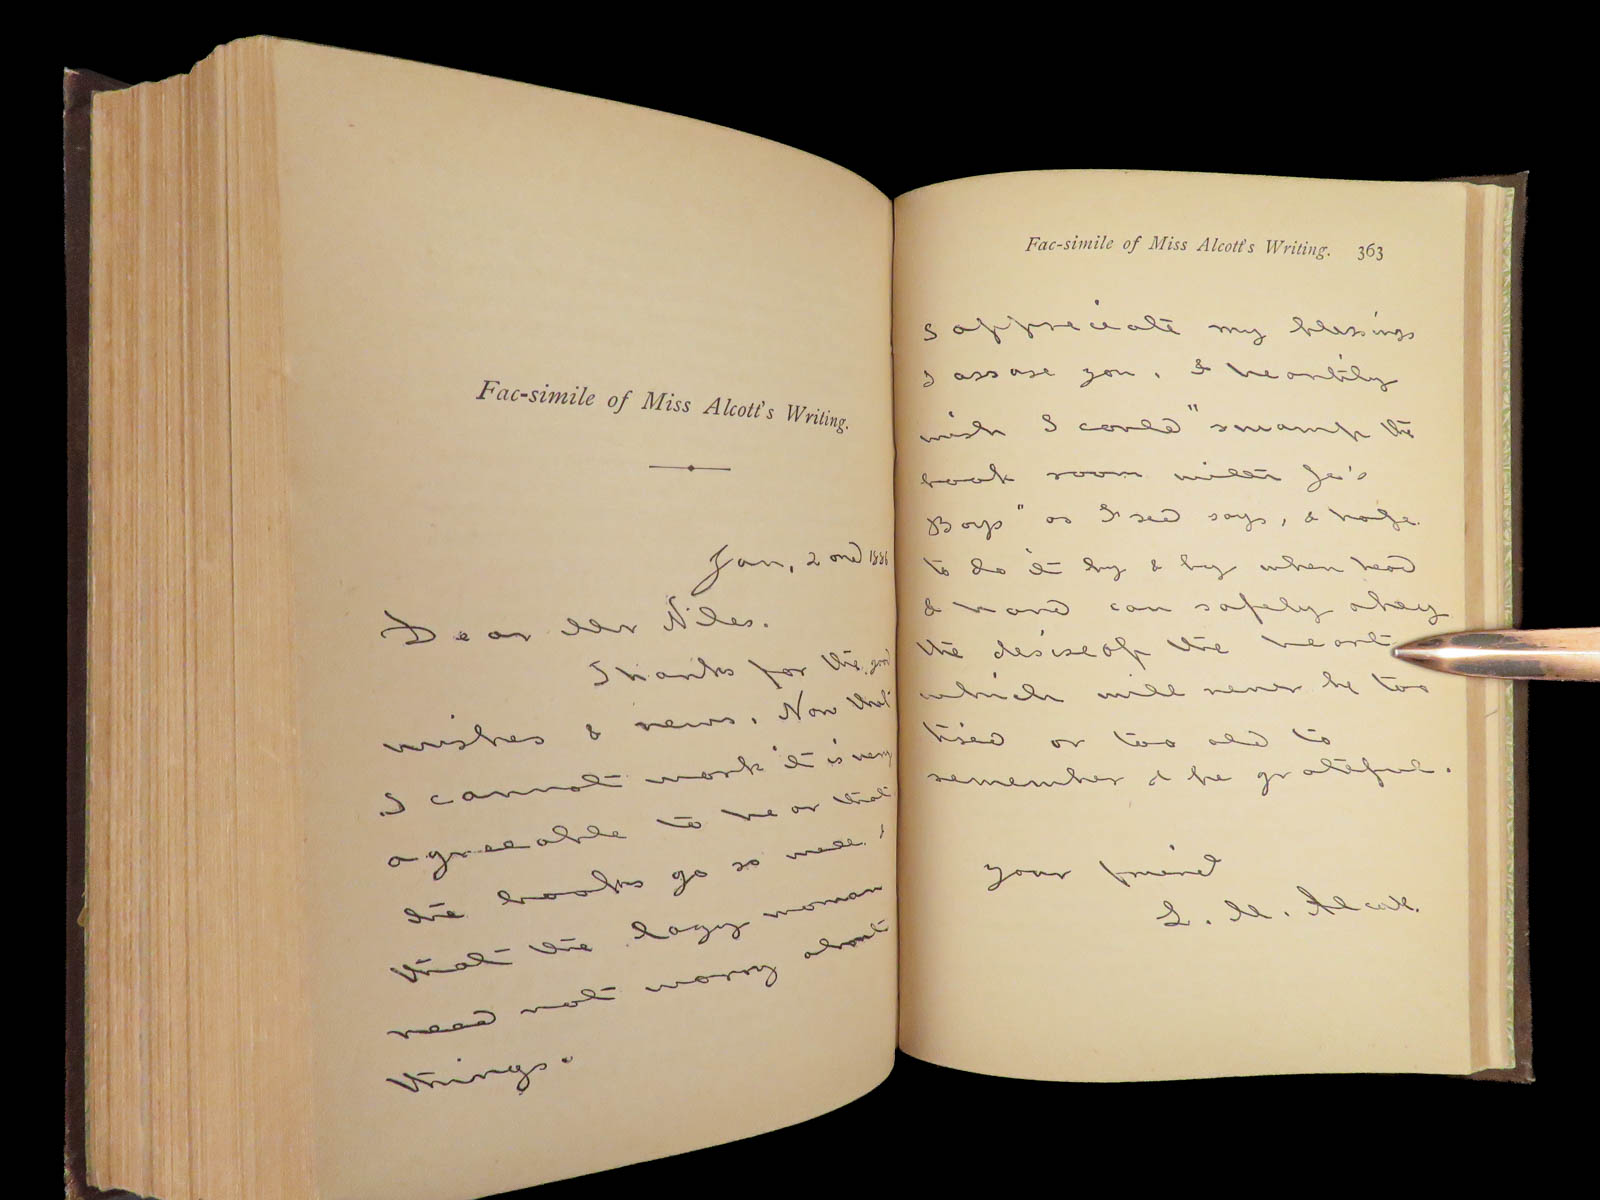 Fac-simile of Miss Alcott's Writing.
Jan, 2ond 1886
Dear Mr Niles.
Thanks for the good
wishes & news. Now that
I cannot work it is very
agreeable to hear that
the books go so well,
that the lazy woman
need not worry about
things.
Fac-simile of Miss Alcott's Writing. 363
I appreciate my blessings
I assure you. I heartily
wish I could "swamp the
book room with Jo's
Boys" as Fred says, & hope
to do it by & by when head
& hand can safely obey
the desire of the heart
which will never be too
tired or too old to
remember & be grateful.
your friend
L. M. Alcott.